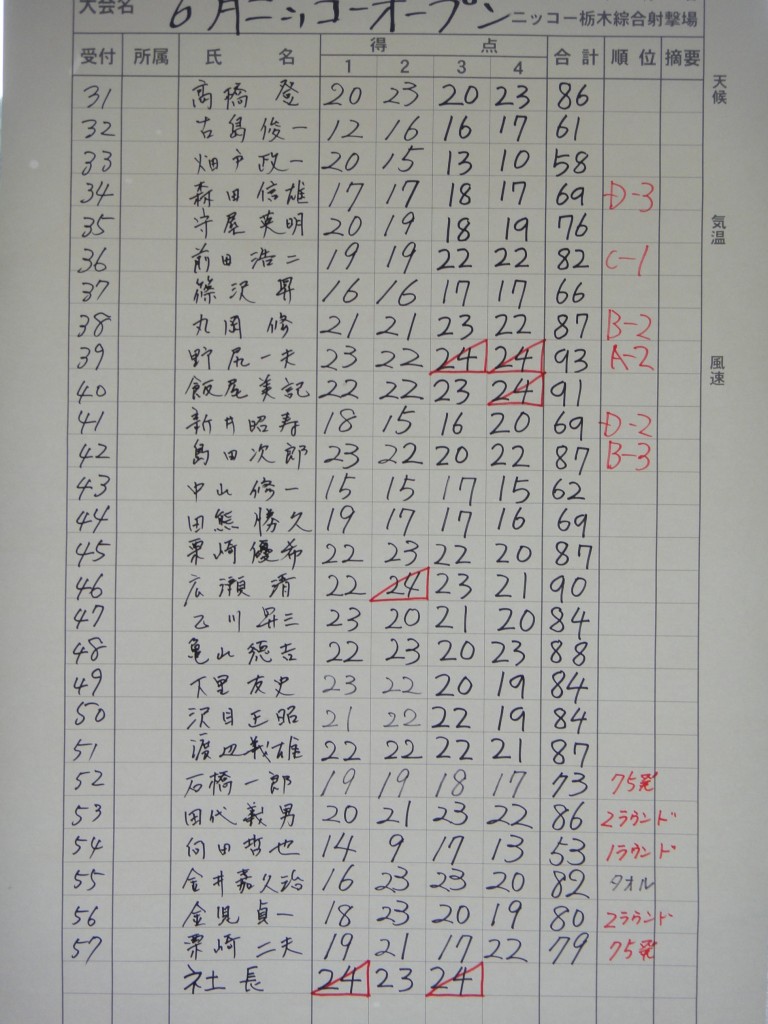 大会名 6月ニッコーオープン ニッコー栃木綜合射撃場
受付 所属 氏名 得点 合計 順位 摘要
1 2 3 4
天候
気温
風速
31 高橋 登 20 23 20 23 86
32 古島俊一 12 16 16 17 61
33 畑戸政一 20 15 13 10 58
34 森田信雄 17 17 18 17 69 D-3
35 守屋英明 20 19 18 19 76
36 前田浩二 19 19 22 22 82 C-1
37 篠沢 昇 16 16 17 17 66
38 丸岡 修 21 21 23 22 87 B-2
39 野尻一夫 23 22 24 24 93 A-2
40 飯屋美記 22 22 23 24 91
41 新井昭寿 18 15 16 20 69 D-2
42 島田次郎 23 22 20 22 87 B-3
43 中山修一 15 15 17 15 62
44 田熊勝久 19 17 17 16 69
45 栗崎優希 22 23 22 20 87
46 広瀬 清 22 24 23 21 90
47 乙川昇三 23 20 21 20 84
48 亀山徳吉 22 23 20 23 88
49 下里友史 23 22 20 19 84
50 沢目正昭 21 22 22 19 84
51 渡辺義雄 22 22 22 21 87
52 石橋一郎 19 19 18 17 73 75発
53 田代義男 20 21 23 22 86 2ラウンド
54 向田哲也 14 9 17 13 53 1ラウンド
55 金井嘉久治 16 23 23 20 82 タオル
56 金児貞一 18 23 20 19 80 2ラウンド
57 栗崎二夫 19 21 17 22 79 75発
社長 24 23 24